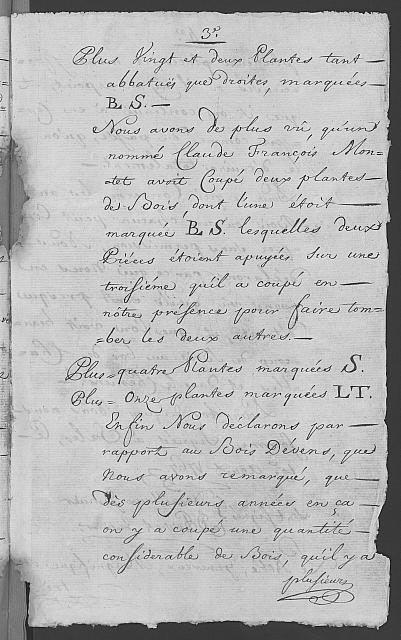 3.e
Plus Vingt et deux Plantes tant
abbatuës que droites, marquées
B. S. —
Nous avons de plus vû, qu'un
nommé Claude François Mon-
=tet avoit Coupé deux plantes
de Bois, dont l'une étoit
marquée B. S. lesquelles deux
Piéces étoient apuyées sur une
troisiéme qu'il a coupé en
nôtre présence pour faire tom-
=ber les deux autres. —
Plus= quatre Plantes marquées S.
Plus= Onze plantes marquées LT.
Enfin Nous déclarons par
rapport au Bois Dévens, que
Nous avons remarqué, que
dès plusieurs années en ça
on y a coupé une quantité
considerable de Bois, qu'il y a
plusieurs